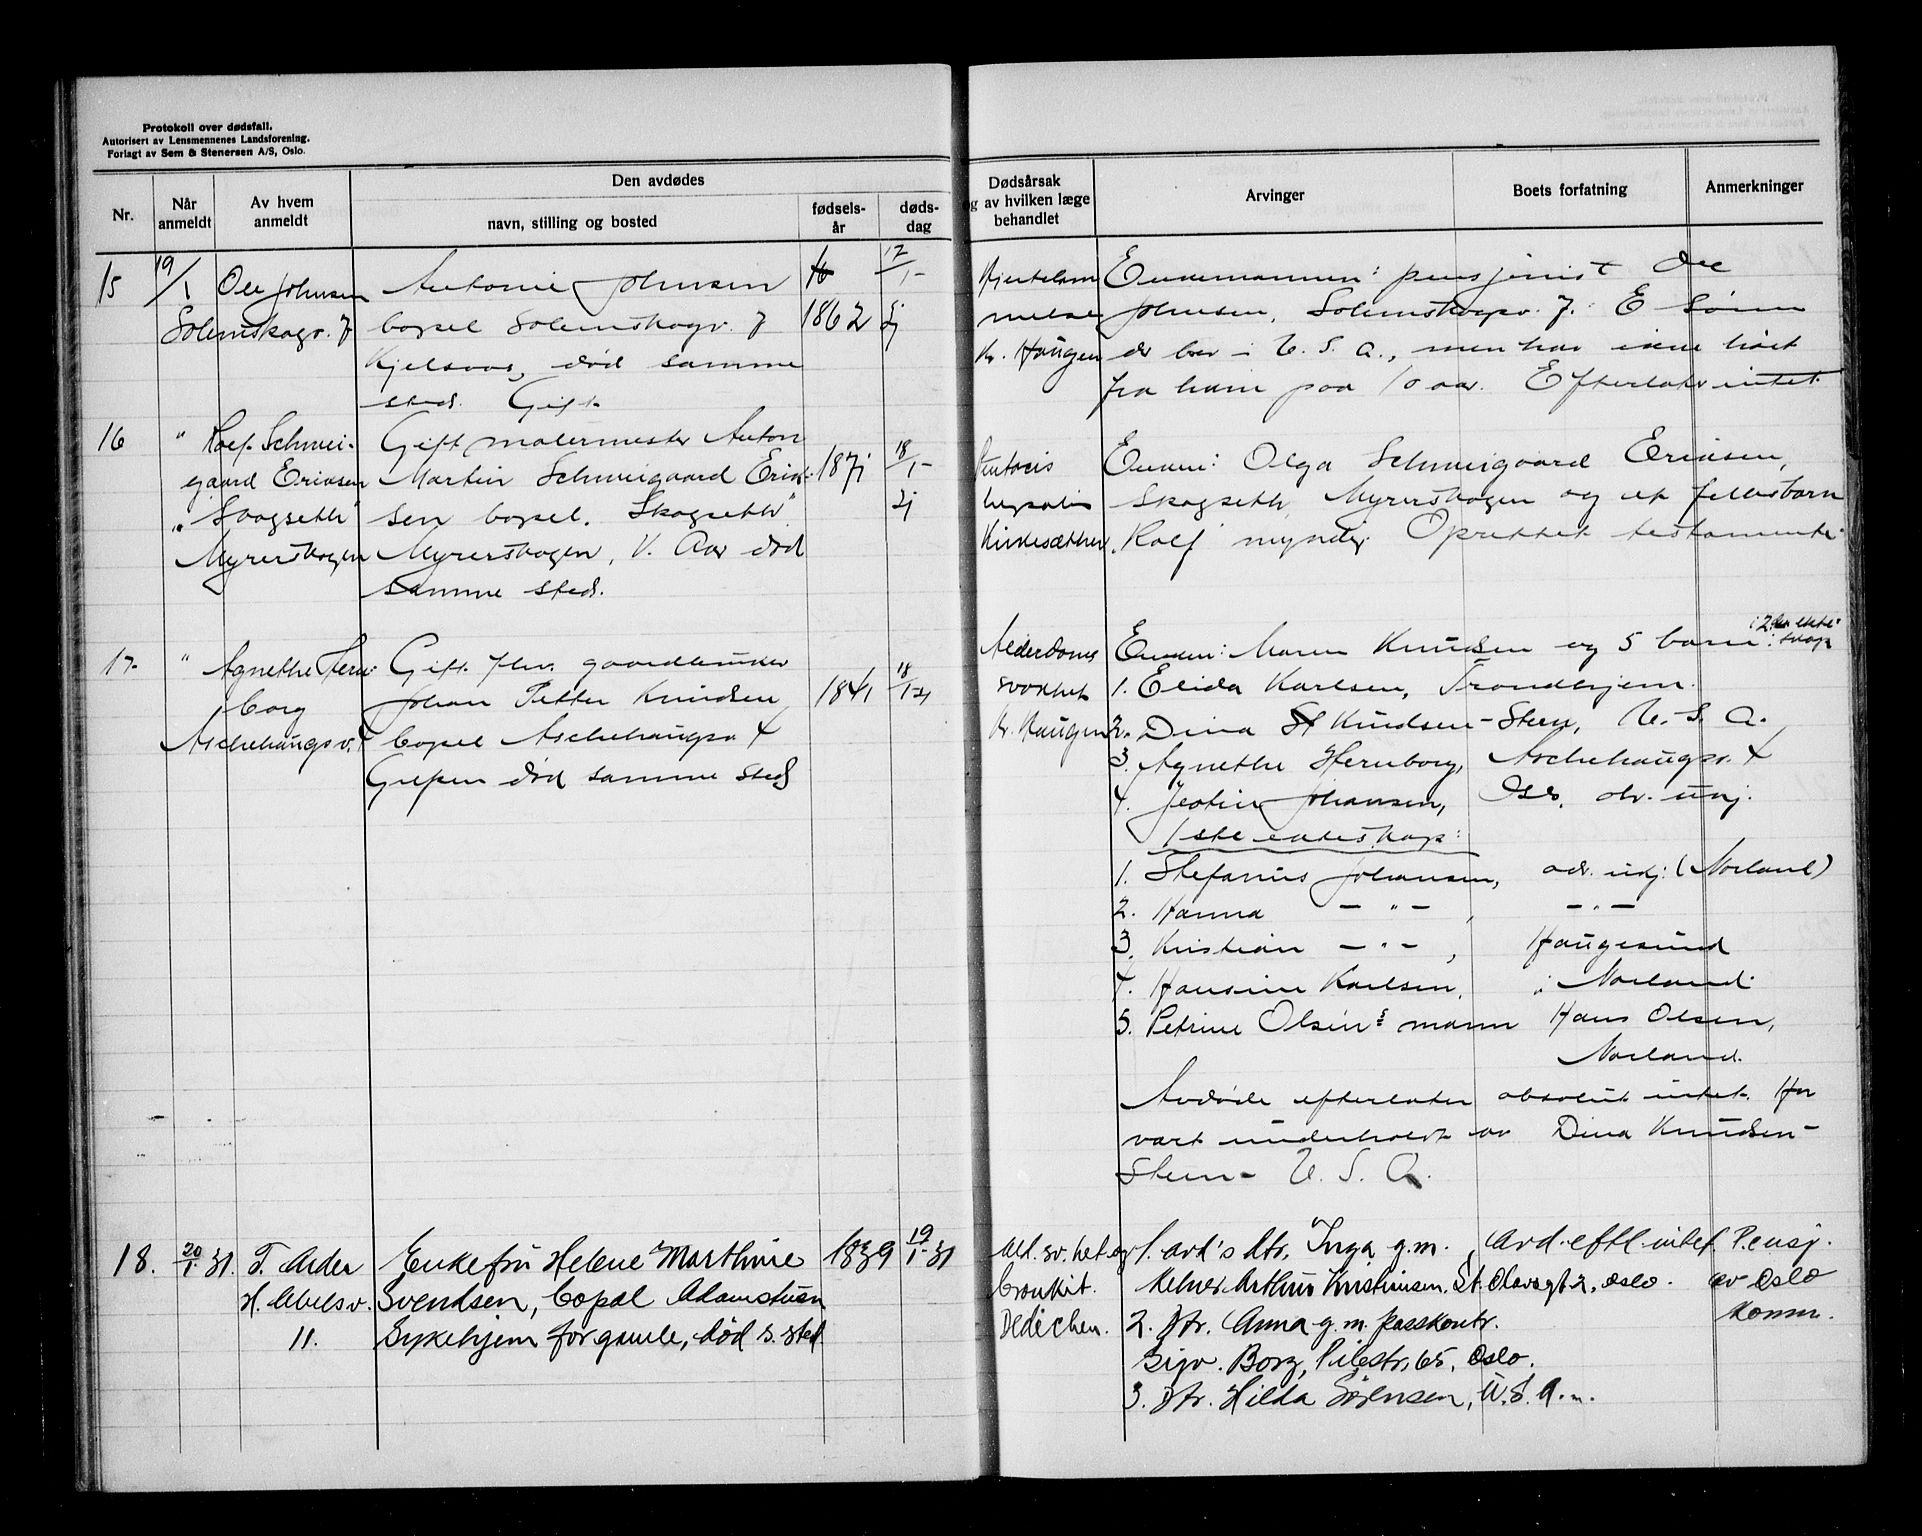 Protokoll over dødsfall.
Autorisert av Lensmennenes Landsforening.
Forlagt av Sem & Stenersen A/S, Oslo.
Nr.
Når anmeldt
Av hvem anmeldt
Den avdødes
navn, stilling og bosted
fødsels-år
døds-dag
Dødsårsak
og av hvilken læge
behandlet
Arvinger
Boets forfatning
Anmerkninger
15 19/1 Ole Johnsen
Solemskogv. 7
Antonie Johnsen
bopel Solemskogv. 7
Kjelsaas, død samme
sted. Gift.
1862
17/1-
31
Hjertelam
melse
Kr. Haugen
Enkemannen: pensjonist Ole
Johnsen, Solemskogv. 7. E sønn
der bor i U. S. A., men har ikke hört
fra ham paa 10 aar. Efterlater intet
16 " Rolf Schwei-
gaard Eriksen
"Skogseth"
Myrerskogen
Gift malermester Anton
Martin Schweigaard Erik-
sen bopel. "Skogseth"
Myrerskogen, V. Aker død
samme sted.
1871
18/1-
31
hepatis
Enken: Olga Schweigaard Eriksen,
Skogseth, Myrerskogen og et fellesbarn
Rolf myndig. Oprettet testamente.
17 " Agnethe Hern-
borg
Aschehaugsv. 4
Gift fhv. gaardbruker
Johan Petter Knudsen
bopel Aschehaugsv. 4
Grefsen død samme sted
1841
18/1-31
Alderdoms
svakhet
Kr. Haugen
Enken: Maren Knudsen og 5 barn: i 2det ekte-
skap
1. Elida Karlsen, Trondhjem.
2. Dina Knudsen-Steen, U. S. A.
3. Agnethe Hernborg, Aschehaugsv. 4
4. Johansen, Oslo, adr. unj.
1ste ekteskap:
1. Stefanus Johansen, adr. unj: (Norland)
2. Hanna — " — , — " —
3. Kristian — " — , Haugesund
4. Hansine Karlsen, i Norland
5. Petrine Olsen: mann Hans Olsen,
Norland.
Avdøde efterlater absolut intet. Har
vært underholdt av Dina Knudsen-
Steen - U. S. A.
18. 20/1 31. T. Arder
H. Abelsv.
11.
Enkefru Helene Marthine
Svendsen, bopæl Adamstuen
Sykehjem for gamle, død s. sted
1839
19/1-31
Ald. sv.het og
bronkit.
Dedichen.
1. avd's dtr. Inga g.m.
Kelner Arthur Kristiansen, St. Olavsgt 2, Oslo.
2. Dtr. Anna g.m. passkontr.
Sigv. Borg, Pilestr. 65, Oslo.
3. Dtr. Hilda Sørensen, U.S.A.
Avd. eftl intet.
Pensj.
av Oslo
komm.